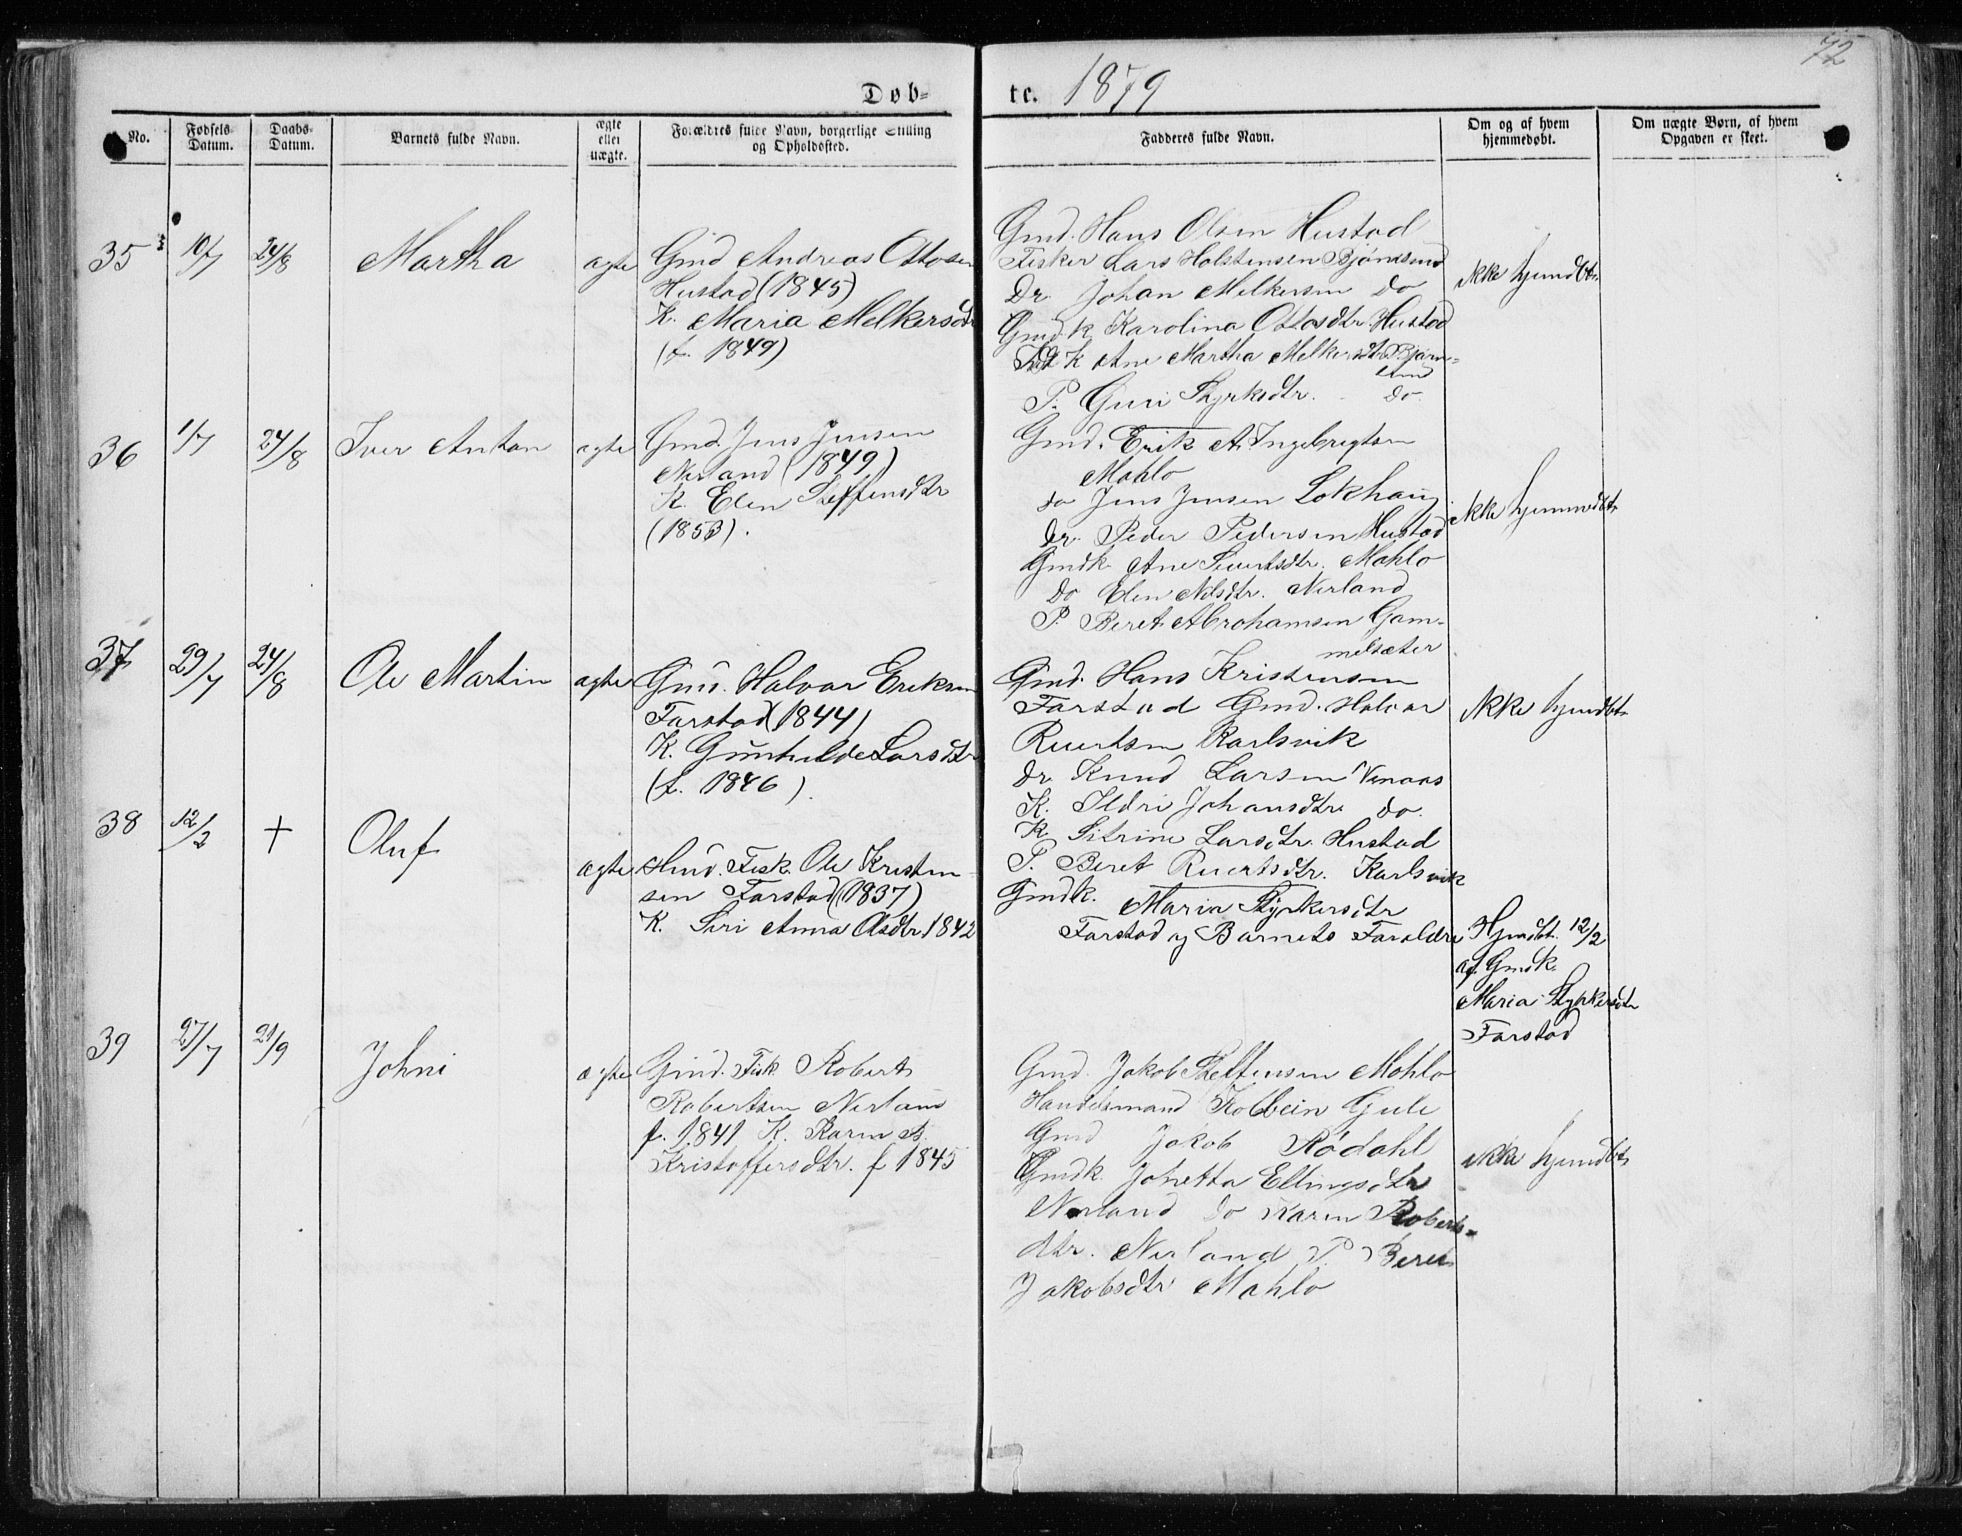 72
Døb- te. 1879
No.
Fødsels-Datum.
Daabs-Datum.
Barnets fulde Navn.
ægte eller uægte.
Forældres fulde Navn, borgerlige Stilling
og Opholdssted.
Fadderes fulde Navn.
Om og af hvem
hjemmedøbt.
Om uægte Børn, af hvem
Opgaven er skeet.
35 10/7 24/8 Martha ægte
Gmd Andreas Ottosen
Hustad (1845)
K. Maria Melkersdtr
(f. 1849)
Gmd. Hans Olsen Hustad
Fisker Lars Holstensen Bjørnsund
Do Johan Melkersen do
Gmd.k Karolina Ottosdtr. Hustad
K Ane Martha Melkersdtr Bjørn-
sund
P. Guri Styrksdtr. do
ikke hjmdbt.
36 1/7 24/8 Iver Anton ægte
Gmd. Jens Jensen
Nerland (1849)
K. Elen Steffensdtr
(1853).
Gmd. Erik A. Ingebrigtsen
Mahlo
do Jens Jensen Lokhaug
do. Peder Pedersen Hustad
Gmdk. Ane Sivertsdtr. Mahlo
Do Elen Nilsdtr. Nerland
P. Beret Abrahamsen Gam-
melsæter
ikke hjemmedbt
37 29/7 24/8 Ole Martin ægte
Gmd. Halvar Eriksen
Farstad (1844)
K. Gunhilde Larsdtr
(f. 1846).
Gmd. Hans Kristensen
Farstad Gmd. Halvar
Ruertsen Karlsvik
Do Knud Larsen Venaas
K. Ildri Johansdtr do.
K Sitrine Larsdtr. Hustad
P. Beret Ruertsdtr. Karlsvik
ikke hjmdbt
38 12/2 + Oluf ægte
Hmd. Fisk. Ole Kristen-
sen Farstad (1837)
K. Siri Anna Olsdtr. 1842
Gmdk. Maria Styrkersdtr
Farstad og Barnets Forældre
Hjmdbt. 12/2
af Gmdk.
Maria Styrkersdtr
Farstad
39 27/7 21/9 Johni ægte
Gmd. Fisk Robert
Robertsen Nerland
f. 1841 K. Karen B.
Kristoffersdtr. f 1845
Gmd. Jakob Steffensen Mahlo
Handelsmand Kolbein Gule
Gmd Jakob Rødahl
Gmdk. Johetta Ellingsdtr
Nerland do Karen Roberts-
dtr. Nerland P. Beret
Jakobsdtr Mahlo
ikke hjmdbt